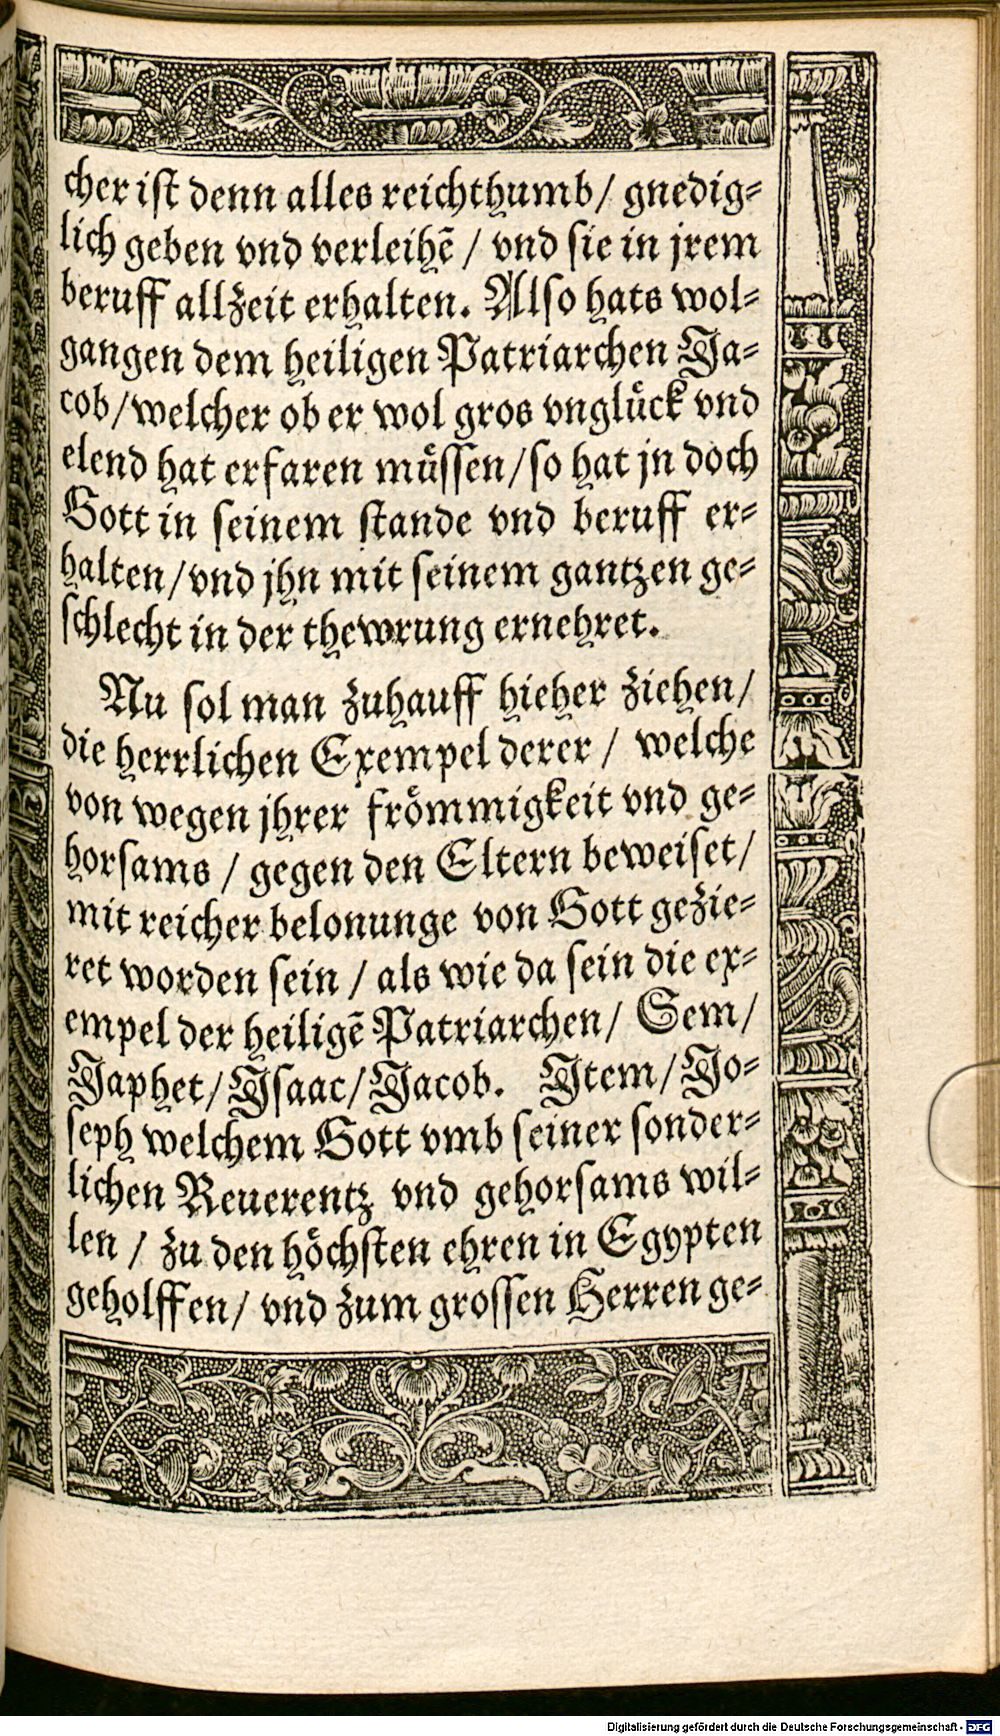 cher ist denn alles reichthumb/ gnedig⸗
lich geben vnd verleihē / vnd sie in jrem
beruff allzeit erhalten. Also hats wol⸗
gangen dem heiligen Patriarchen Ja⸗
cob/welcher ob er wol gros vnglück vnd
elend hat erfaren müssen/so hat jn doch
Gott in seinem stande vnd beruff er⸗
halten/vnd jhn mit seinem gantzen ge⸗
schlecht in der thewrung ernehret.
Nu sol man zuhauff hieher ziehen/
die herrlichen Exempel derer / welche
von wegen jhrer frömmigkeit vnd ge⸗
horsams / gegen den Eltern beweiset/
mit reicher belonunge von Gott gezie⸗
ret worden sein / als wie da sein die ex⸗
empel der heiligē Patriarchen/ Sem/
Japhet/Jsaac/Jacob. Jtem/Jo⸗
seph welchem Gott vmb seiner sonder⸗
lichen Reuerentz vnd gehorsams wil⸗
len / zu den höchsten ehren in Egypten
geholffen/ vnd zum grossen Herren ge⸗
Digitalisierung gefördert durch die Deutsche Forschungsgemeinschaft - DFG